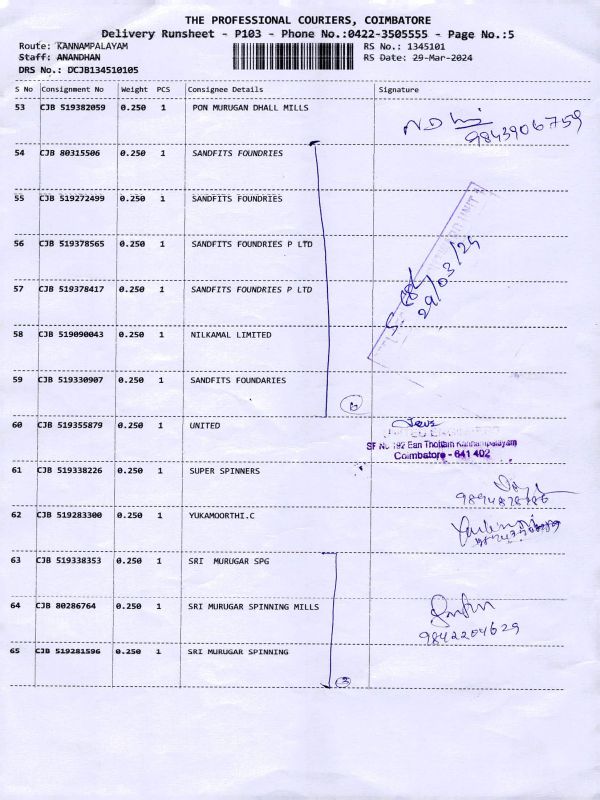 THE PROFESSIONAL COURIERS, COIMBATORE
Delivery Runsheet - P103 - Phone No.:0422-3505555 - Page No.:5
Route: KANNAMPALAYAM RS No.: 1345101
Staff: ANANDHAN RS Date: 29-Mar-2024
DRS No.: DCJB134510105
S No Consignment No Weight PCS Consignee Details Signature
53 CJB 519382059 0.250 1 PON MURUGAN DHALL MILLS
9843906759
54 CJB 80315506 0.250 1 SANDFITS FOUNDRIES
55 CJB 519272499 0.250 1 SANDFITS FOUNDRIES
56 CJB 519378565 0.250 1 SANDFITS FOUNDRIES P LTD
29/03/24
57 CJB 519378417 0.250 1 SANDFITS FOUNDRIES P LTD
58 CJB 519090043 0.250 1 NILKAMAL LIMITED
59 CJB 519330907 0.250 1 SANDFITS FOUNDARIES
60 CJB 519355879 0.250 1 UNITED
SF No 192 Ean Thottam Kannampalayam
Coimbatore - 641 402
61 CJB 519338226 0.250 1 SUPER SPINNERS
62 CJB 519283300 0.250 1 YUKAMOORTHI.C
63 CJB 519338353 0.250 1 SRI MURUGAR SPG
64 CJB 80286764 0.250 1 SRI MURUGAR SPINNING MILLS
9842204629
65 CJB 519281596 0.250 1 SRI MURUGAR SPINNING
3